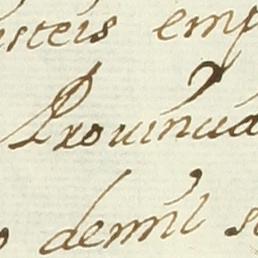 isteis emp
Prouincia
demil s